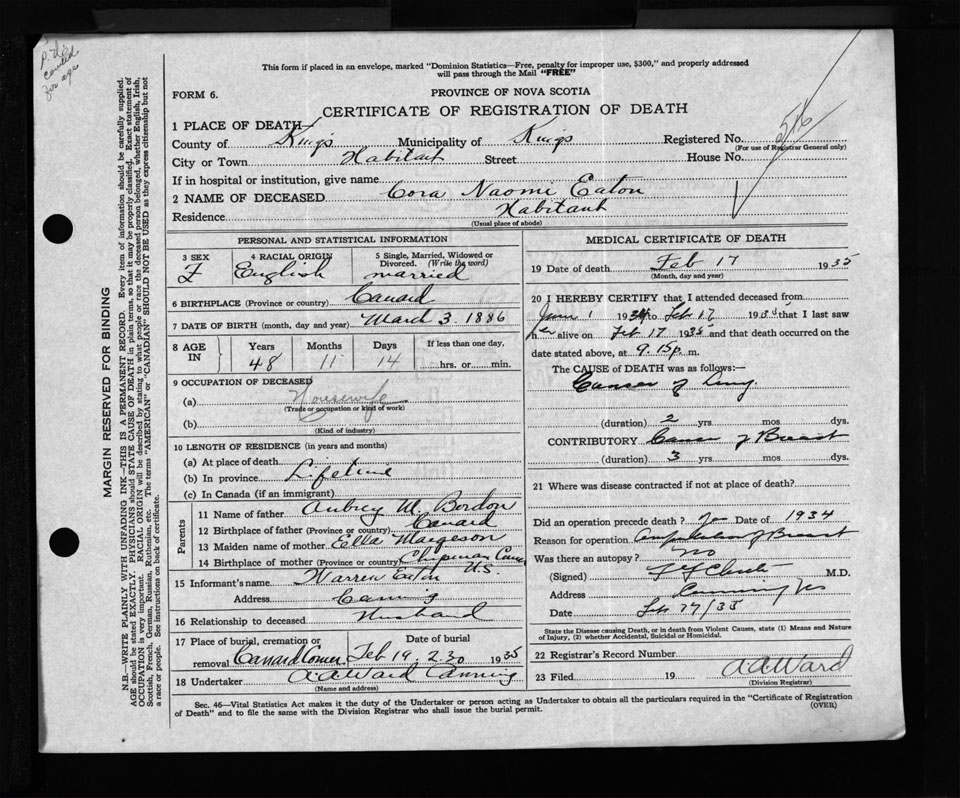 This form if placed in an envelope, marked "Dominion Statistics—Free, penalty for improper use, $300," and properly addressed
will pass through the Mail "FREE"
FORM 6.
PROVINCE OF NOVA SCOTIA
CERTIFICATE OF REGISTRATION OF DEATH
1 PLACE OF DEATH
County of Kings Municipality of Kings Registered No. 516
(For use of Registrar General only)
City or Town Habitant Street House No.
If in hospital or institution, give name
2 NAME OF DECEASED Cora Naomi Eaton
Residence Habitant
(Usual place of abode)
PERSONAL AND STATISTICAL INFORMATION
3 SEX 4 RACIAL ORIGIN 5 Single, Married, Widowed or
Divorced. (Write the word)
F English married
6 BIRTHPLACE (Province or country) Canard
7 DATE OF BIRTH (month, day and year) March 3 1886
8 AGE IN Years Months Days If less than one day,
48 11 14 hrs. or min.
9 OCCUPATION OF DECEASED
(a) Housewife
(Trade or occupation or kind of work)
(b)
(Kind of industry)
10 LENGTH OF RESIDENCE (in years and months)
(a) At place of death
(b) In province Lifetime
(c) In Canada (if an immigrant)
Parents
11 Name of father Aubrey W. Bordon
12 Birthplace of father (Province or country) Canard
13 Maiden name of mother Ella Margeson
14 Birthplace of mother (Province or country) Chipman U.S.
15 Informant's name Warren Eaton
Address Canning
16 Relationship to deceased Husband
17 Place of burial, cremation or Date of burial
removal Canard Corner Feb 19, 2.30 1935
18 Undertaker A A Ward Canning
(Name and address)
MEDICAL CERTIFICATE OF DEATH
19 Date of death Feb 17 1935
(Month, day and year)
20 I HEREBY CERTIFY that I attended deceased from
June 1 1934 to Feb 17 1935 that I last saw
her alive on Feb 17 1935 and that death occurred on
date stated above, at 9.15 p. m.
The CAUSE of DEATH was as follows:—
Cancer of Lung.
(duration) 2 yrs mos. dys.
CONTRIBUTORY Cancer of Breast
(duration) 3 yrs mos. dys.
21 Where was disease contracted if not at place of death?
Did an operation precede death? Date of 1934
Reason for operation Amputation of Breast
Was there an autopsy? No
(Signed) M.D.
Address Canning NS
Date Feb /35
State the Disease causing Death, or in death from Violent Causes, state (1) Means and Nature
of Injury, (2) whether Accidental, Suicidal or Homicidal.
22 Registrar's Record Number
23 Filed 19 A A Ward
(Division Registrar)
Sec. 46—Vital Statistics Act makes it the duty of the Undertaker or person acting as Undertaker to obtain all the particulars required in the "Certificate of Registration
of Death" and to file the same with the Division Registrar who shall issue the burial permit. (OVER)
MARGIN RESERVED FOR BINDING
N.B.—WRITE PLAINLY WITH UNFADING INK—THIS IS A PERMANENT RECORD. Every item of information should be carefully supplied.
AGE should be stated EXACTLY. PHYSICIANS should STATE CAUSE OF DEATH in plain terms, so that it may be properly classified. Exact statement of
OCCUPATION is very important. RACIAL ORIGIN will be described by stating to what people or race the deceased person belonged, whether English, Irish,
Scottish, French, German, Russian, Ruthenian, etc. The terms "AMERICAN" or "CANADIAN" SHOULD NOT BE USED as they express citizenship but not
a race or people. See instructions on back of certificate.